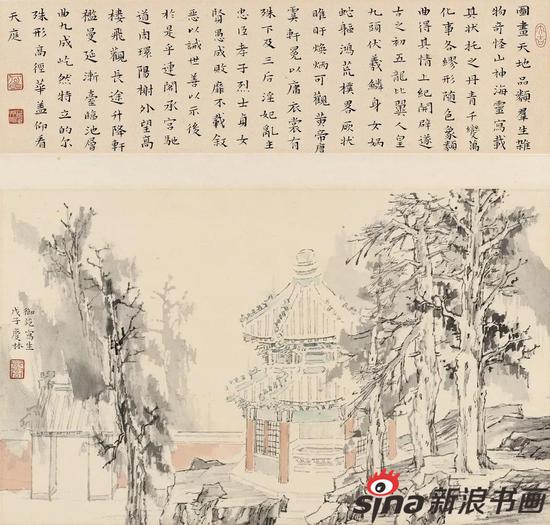 圖畫天地品類羣生雜
物奇怪山神海靈寫載
其狀托之丹青千變萬
化事各繆形隨色象類
曲得其情上紀開闢遂
古之初五龍比翼人皇
九頭伏羲鱗身女媧
蛇軀鴻荒樸畧厥狀
睢盱煥炳可觀黃帝唐
虞軒冕以庸衣裳有
殊下及三后淫妃亂主
忠臣孝子烈士貞女
賢愚成敗靡不載敘
惡以誡世善以示後
於是乎連閣承宮馳
道周環陽榭外望高
樓飛觀長途升降軒
檻曼延漸臺臨池層
曲九成屹然特立的尔
殊形高徑華蓋仰看
天庭
御苑寫生
戊子慶林
sina新浪书画